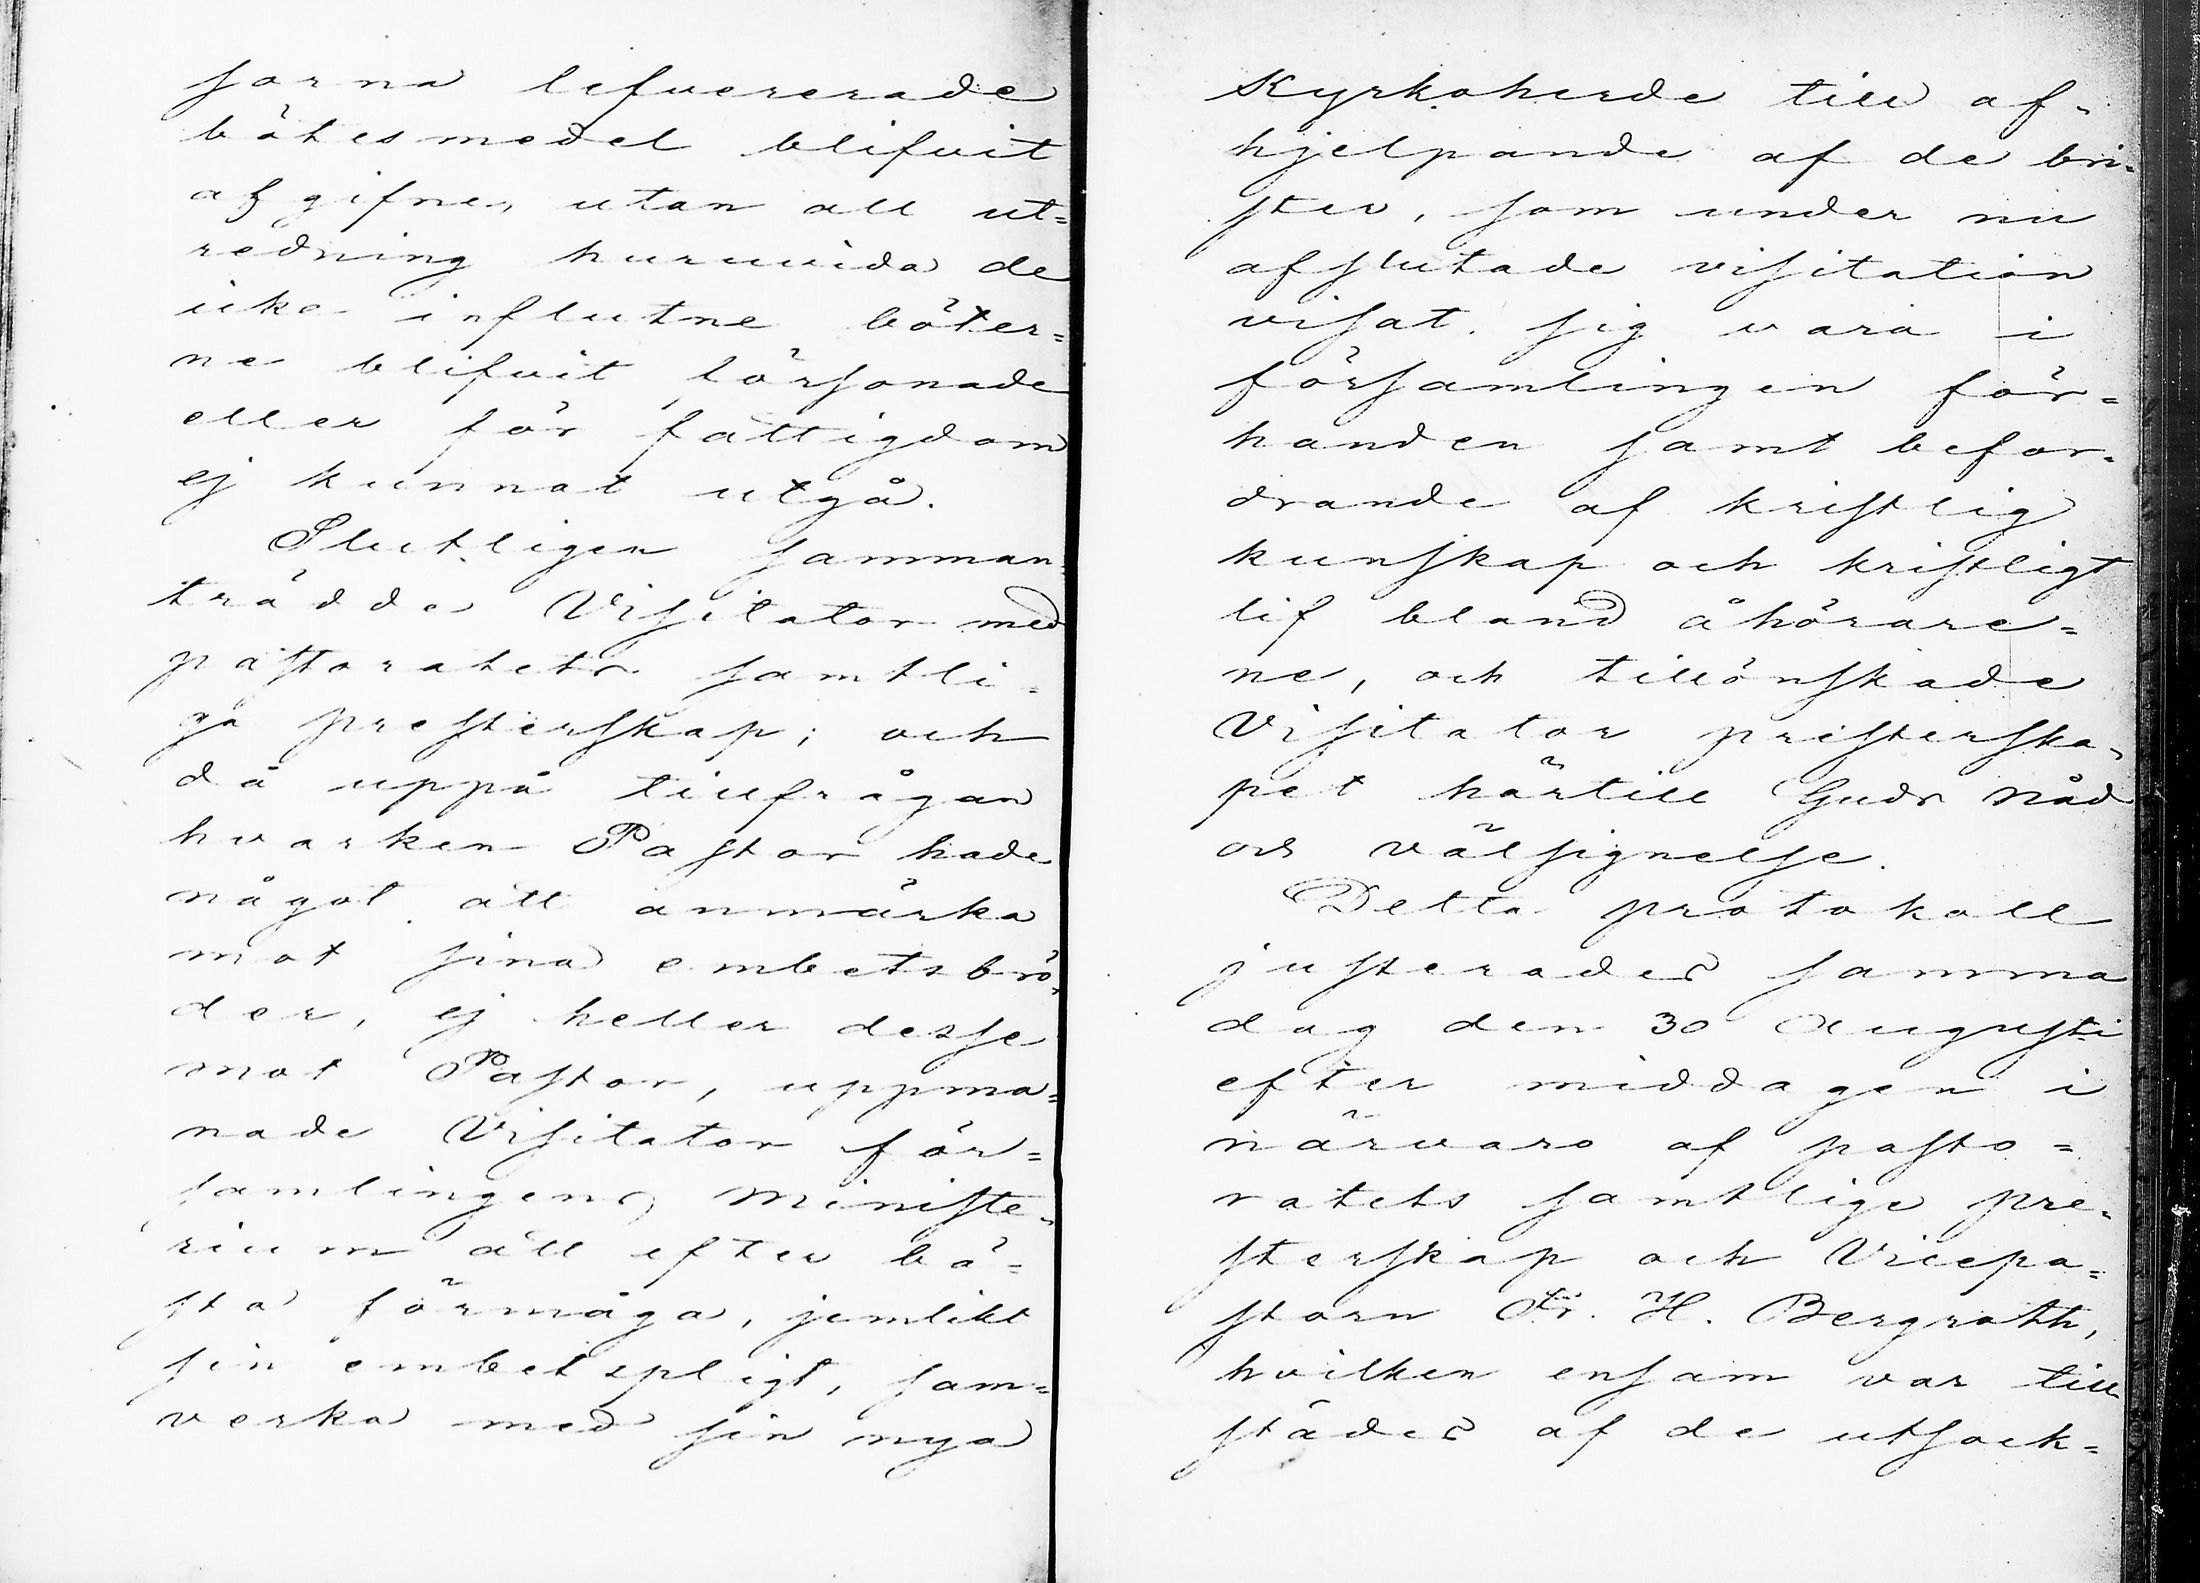 sorna lefvererade
bötesmedel blifvit
afgifne, utan all ut=
redning huruvida de
icke influtne böter=
ne blifvit försonade
eller för fattigdom
ej kunnat utgå.
Slutligen samman=
trädde Visitator med
pastoratets samtli=
ga presterskap; och
då uppå tillfrågan
hvarken Pastor hade
något att anmärka
mot sina embetsbrö=
der, ej heller desse
mot Pastor, uppma=
nade Visitator för=
samlingens Ministe=
rium att efter bä=
sta förmåga, jemlikt
sin embetspligt, sam=
verka med sin nya
Kyrkoherde till af=
hjelpande af de bri=
ster, som under nu
afslutade visitation
visat sig vara i
församlingen för=
handen samt befor=
drande af kristlig
kunskap och kristligt
lif bland åhörare=
ne, och tillönskade
Visitator presterska=
pet härtill Guds nåd
och välsignelse.
Detta protokoll
justerades samma
dag den 30 Augusti
efter middagen i
närvaro af pasto=
ratets samtlige pre=
sterskap och Vicepa=
storn Fr. H. Bergroth,
hvilken ensam var till
städes af de utsock=